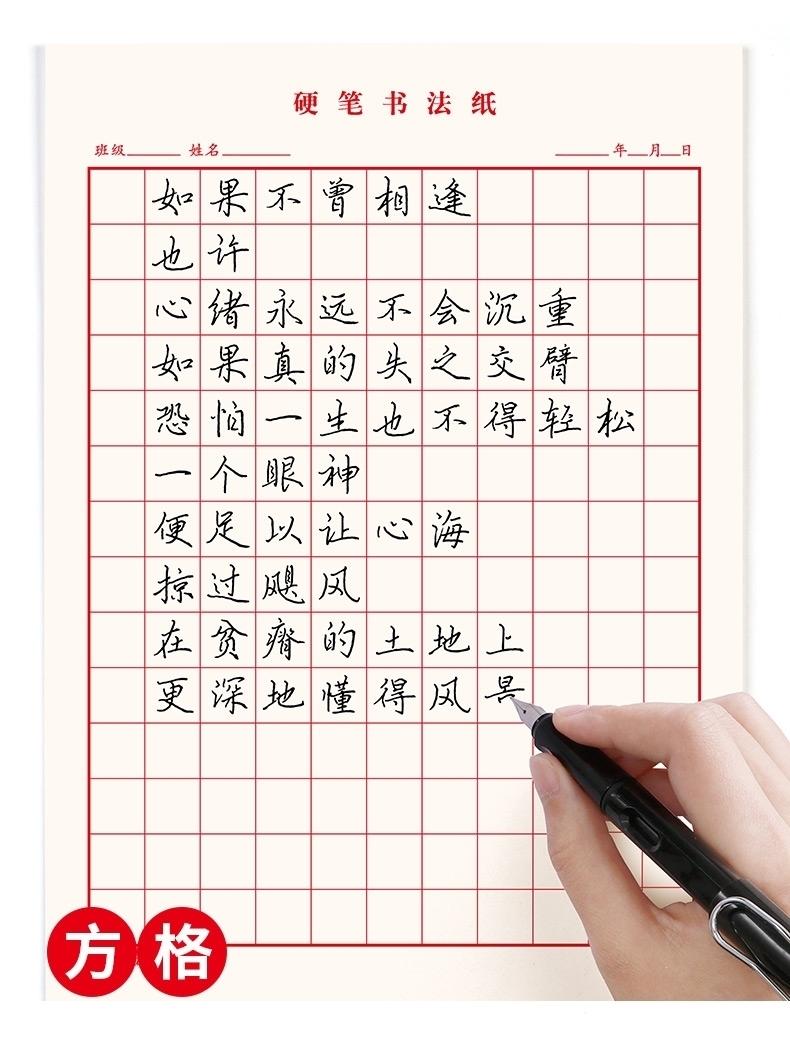 硬笔书法纸
班级 姓名 年 月 日
如果不曾相逢
也许
心绪永远不会沉重
如果真的失之交臂
恐怕一生也不得轻松
一个眼神
便足以让心海
掠过飓风
在贫瘠的土地上
更深地懂得风景
方格